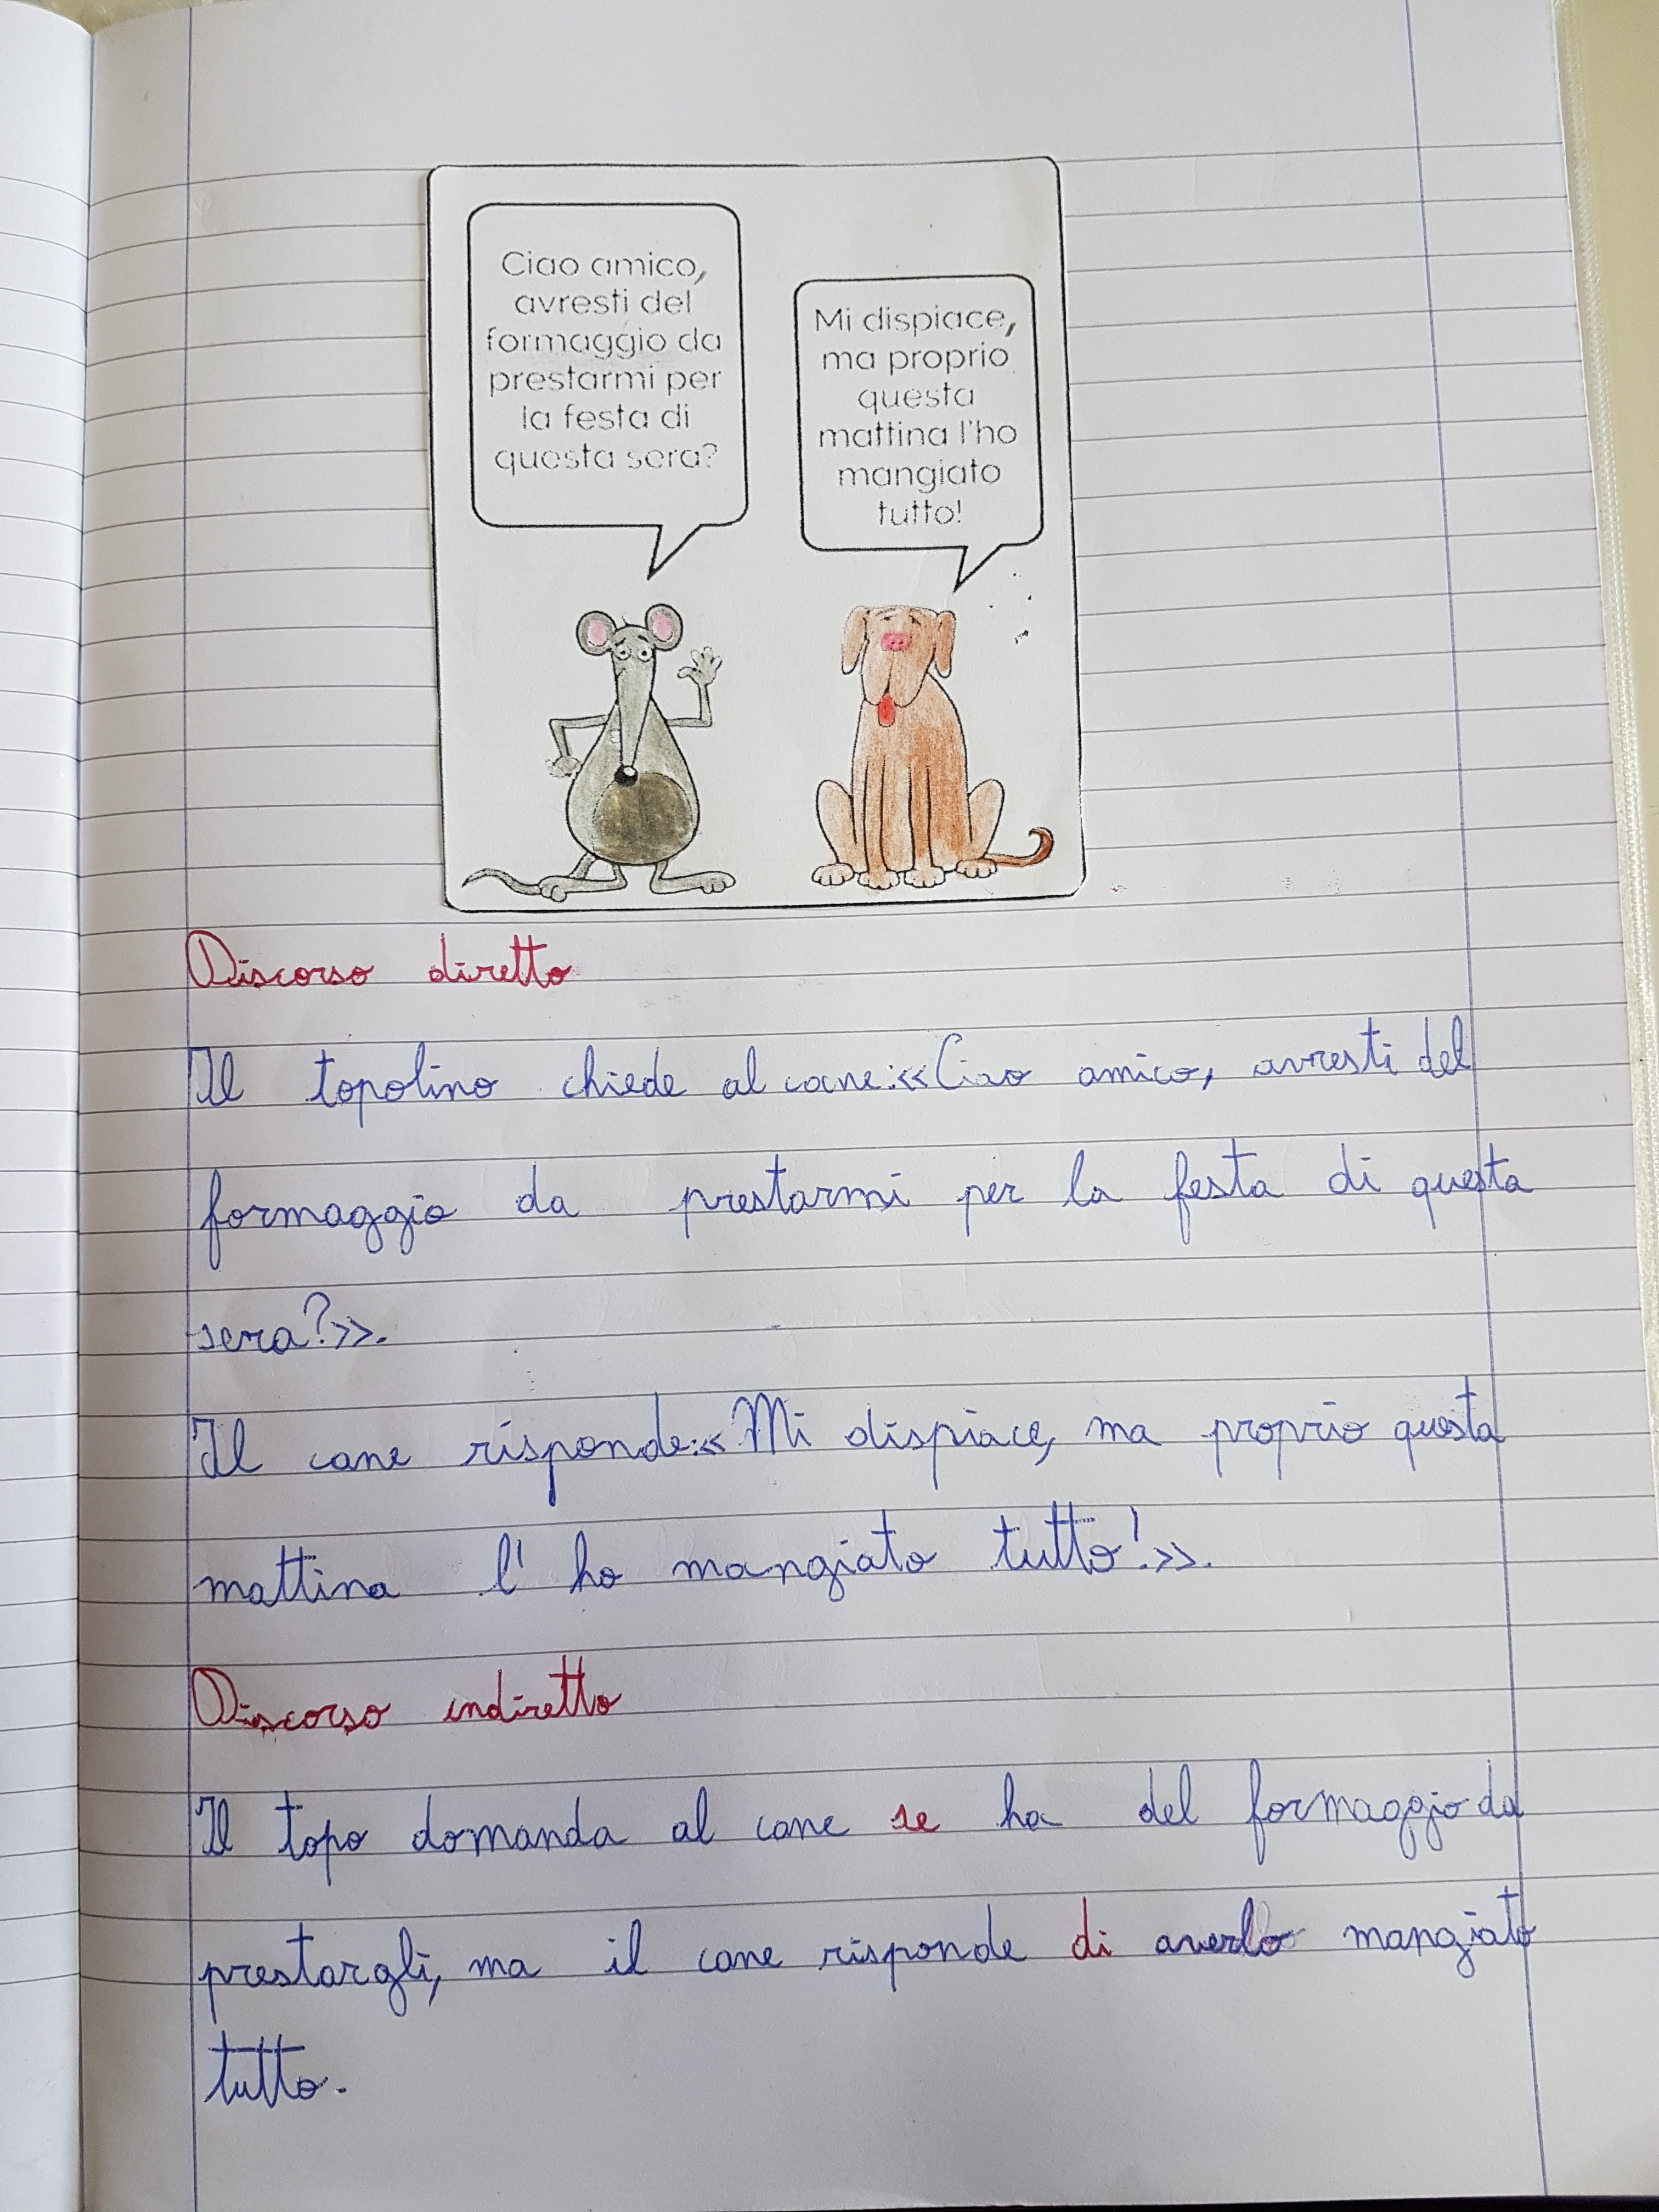 Ciao amico,
avresti del
formaggio da
prestarmi per
la festa di
questa sera?
Mi dispiace,
ma proprio
questa
mattina l'ho
mangiato
tutto!
Discorso diretto
Il topolino chiede al cane:«Ciao amico, avresti del
formaggio da prestarmi per la festa di questa
sera?».
Il cane risponde:«Mi dispiace, ma proprio questa
mattina l'ho mangiato tutto!».
Discorso indiretto
Il topo domanda al cane se ha del formaggio da
prestargli, ma il cane risponde di averlo mangiato
tutto.